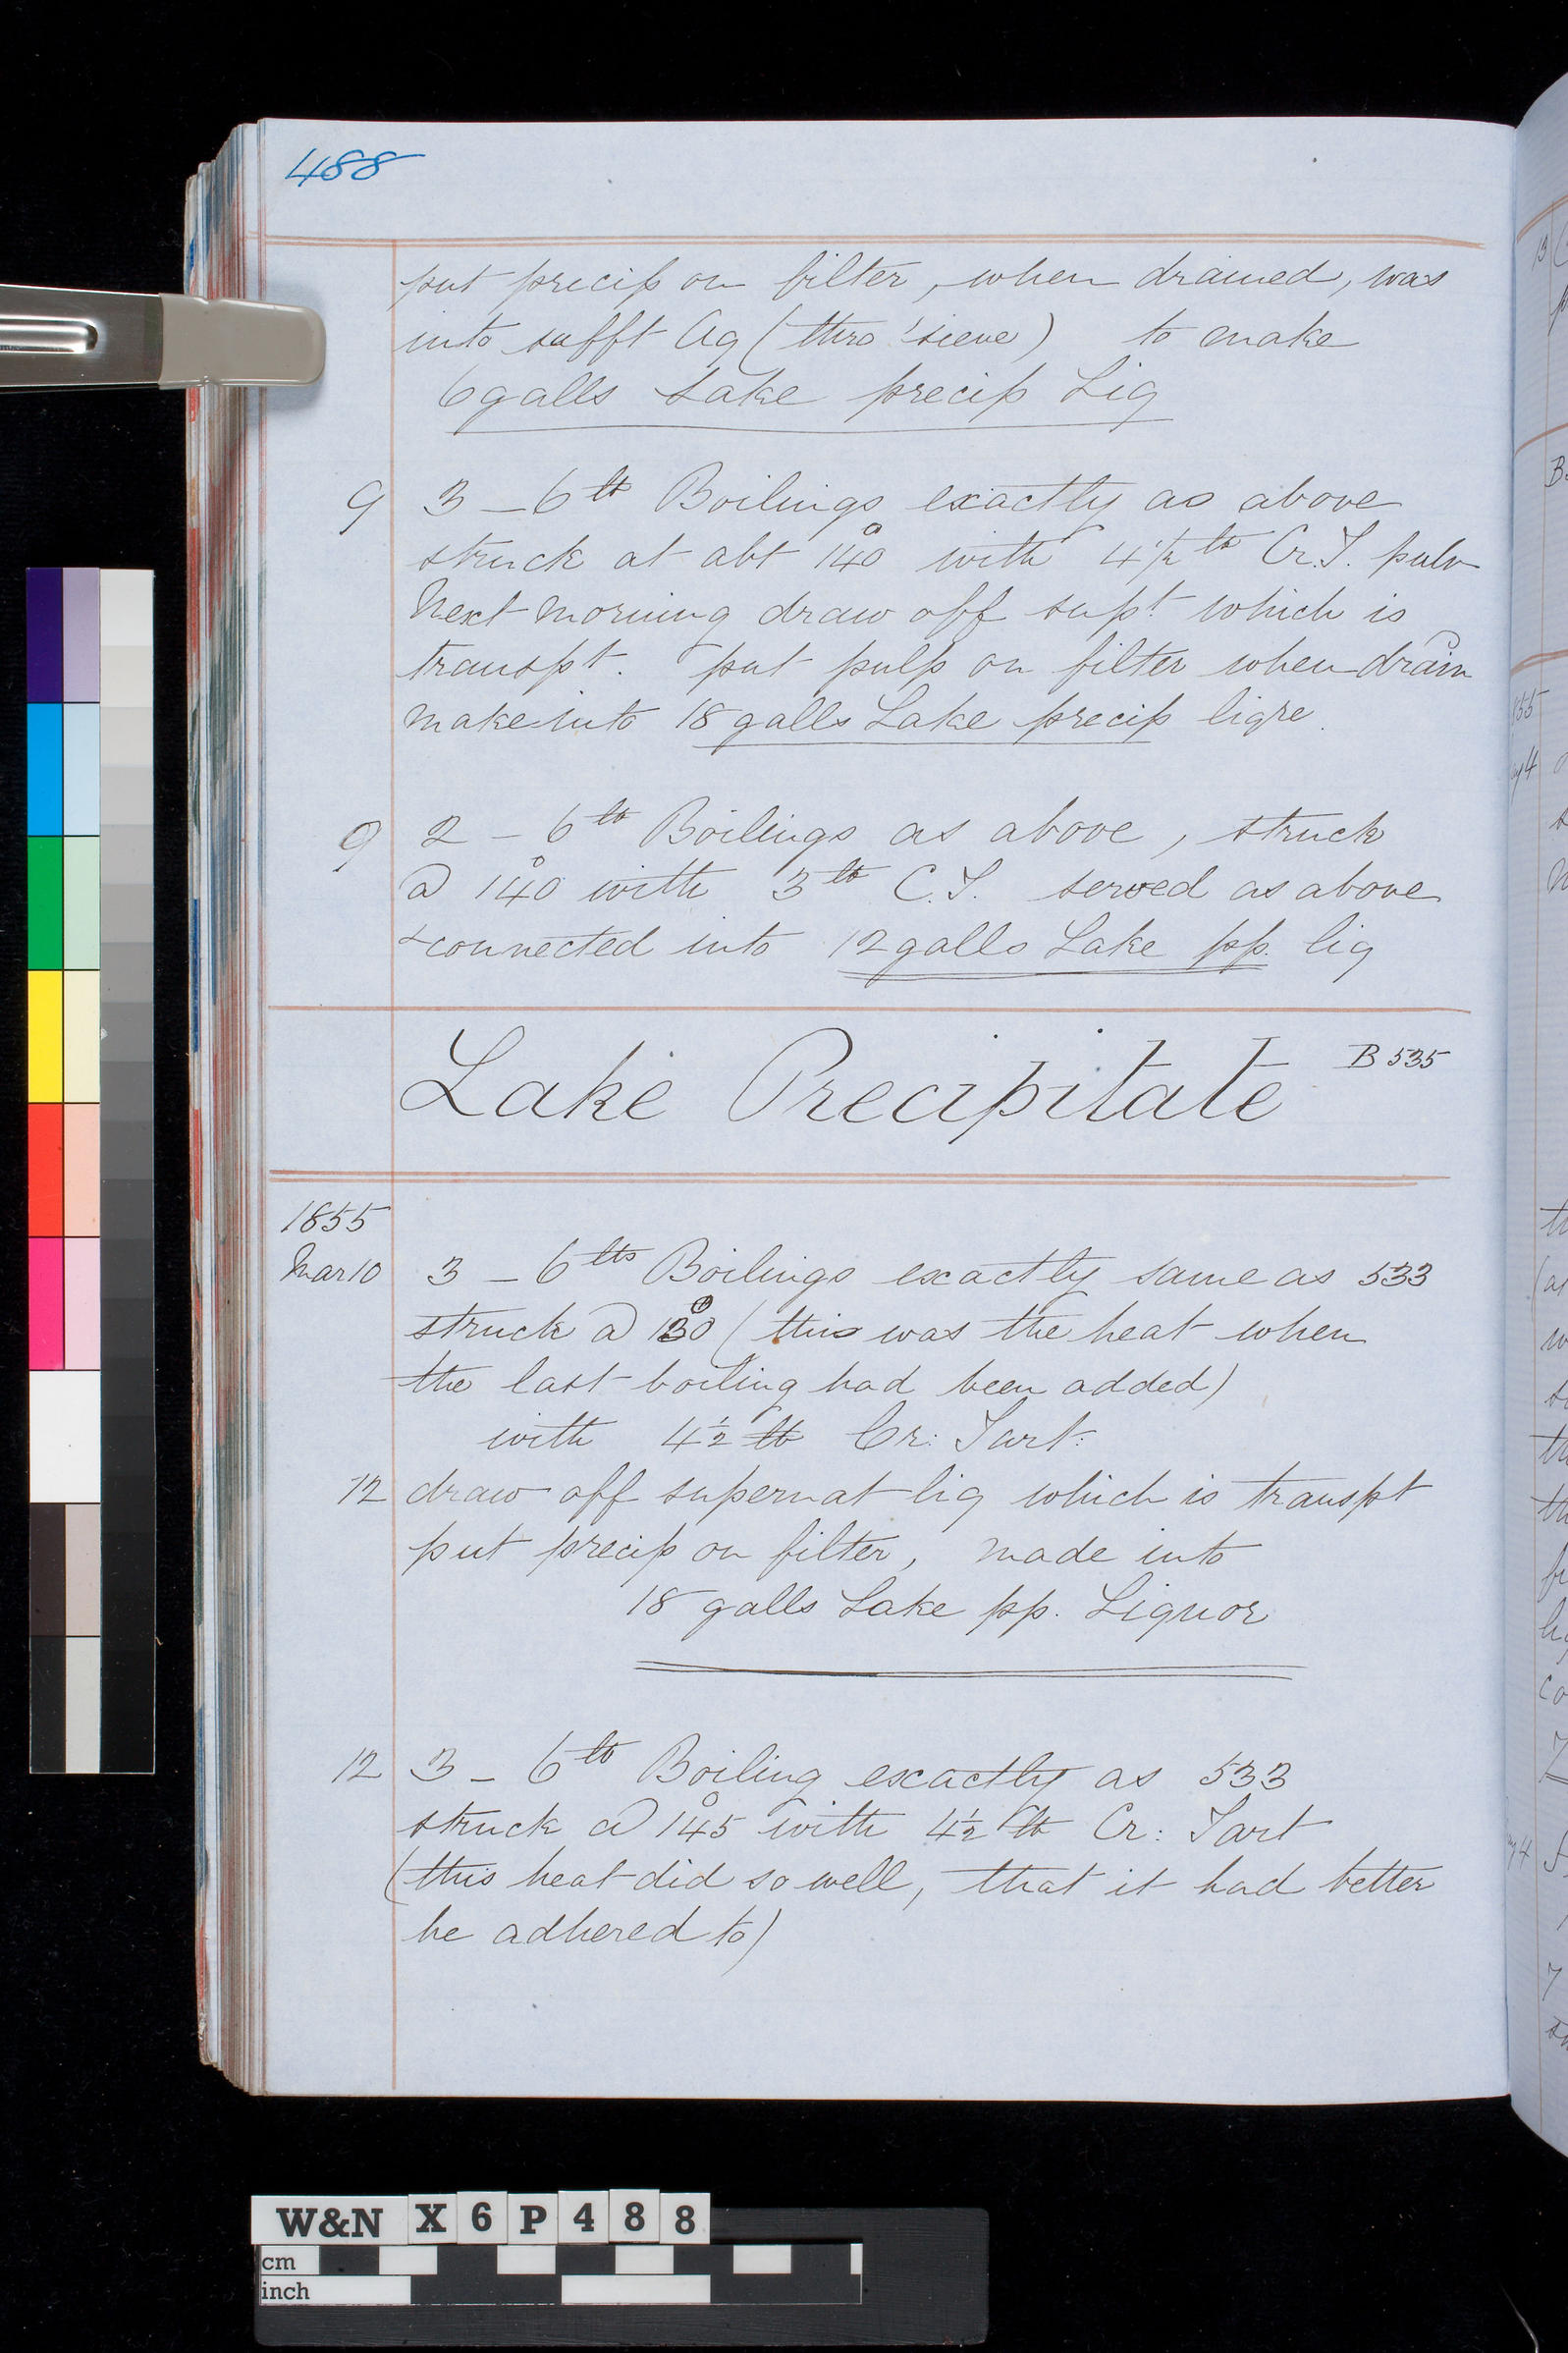 488
put precip on filter, when drained, was
into sufft Aq (thro' sieve) to make
6 galls Lake precip Liq
9 3 - 6 lb Boilings exactly as above
struck at abt 140° with 4 1/2 lb Cr. T. pulv
Next morning draw off supt. which is
transpt. put pulp on filter when drain
make into 18 galls Lake precip liqre.
9 2 - 6 lb Boilings as above, struck
@ 140° with 3 lb C. T. served as above
& connected into 12 galls Lake pp. liq
Lake Precipitate B 535
1855
Mar 10 3 - 6 lbs Boilings exactly same as 533
struck @ 130° (this was the heat when
the last boiling had been added)
with 4 1/2 lb Cr: Tart:
12 draw off supernat liq which is transpt
put precip on filter, made into
18 galls Lake pp. Liquor
12 3 - 6 lb Boiling exactly as 533
struck @ 145° with 4 1/2 lb Cr: Tart
(this heat did so well, that it had better
be adhered to)
W&N X 6 P 4 8 8
cm
inch